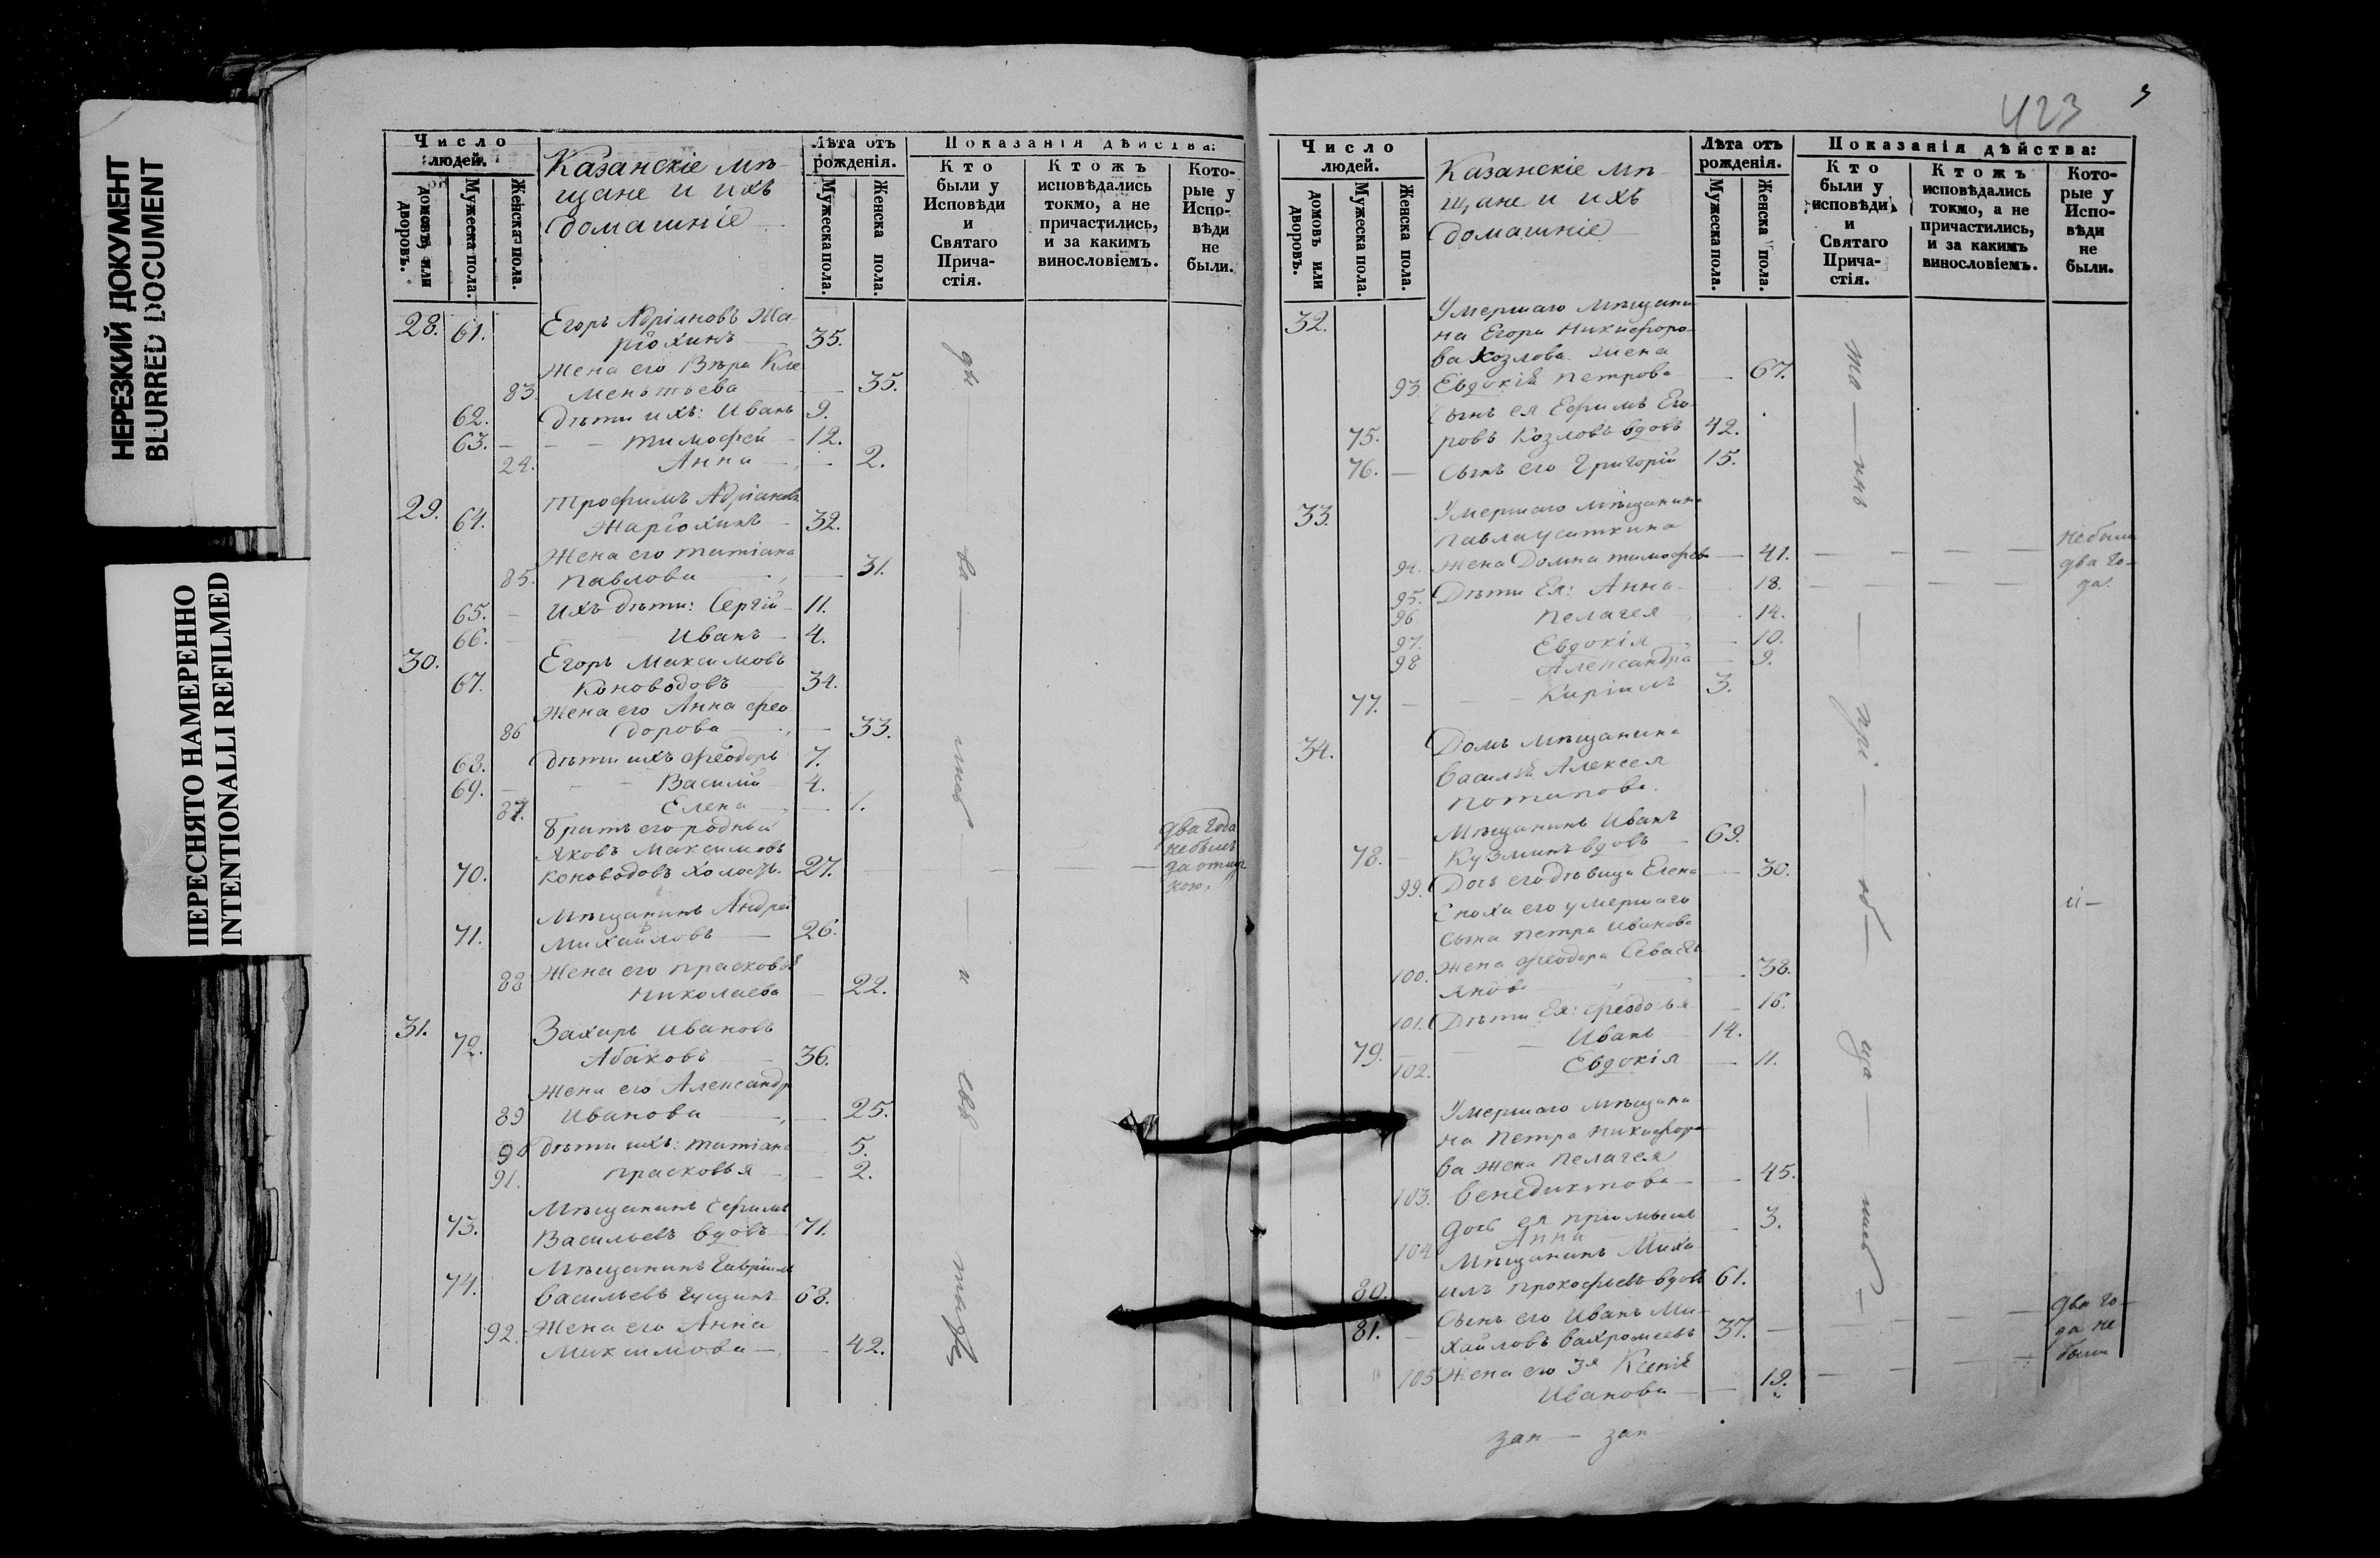 НЕРЕЗКИЙ ДОКУМЕНТ
BLURRED DOCUMENT
ПЕРЕСНЯТО НАМЕРЕННО
INTENTIONALLI REFILMED
Число людей.
домовъ или дворовъ.
Мужеска пола.
Женска пола.
Казанскіе мѣ-
щане и ихъ
домашніе
Лѣта отъ рожденія.
Мужеска пола.
Женска пола.
Показанія дѣйства:
Кто были у Исповѣди и Святаго Прича-стія.
Ктожъ исповѣдались токмо, а не причастились, и за какимъ винословіемъ.
Кото-рые у Испо-вѣди не были.
28. 61. Егоръ Адріановъ Жа-
рюхинъ 35.
Жена его Вѣра Кле
83. ментьева 35.
62. Дѣти ихъ: Иванъ 9.
63. Тимофей 12.
24. Анна 2.
29. 64. Трофимъ Адріановъ
Жарюхинъ 32.
Жена его Татіана
85. Павлова 31.
65. Ихъ дѣти: Сергій 11.
66. Иванъ 4.
30. Егоръ Максимовъ
67. Коноводовъ 34.
Жена его Анна Фео
86 дорова 33.
68. Дѣти ихъ Феодоръ 7.
69. Василій 4.
87. Елена 1.
Братъ его родный
Яковъ Максимовъ
70. Коноводовъ холостъ. 27.
два года
небылъ
за отлуч
кою.
Мѣщанинъ Андрей
71. Михайловъ 26.
88 Жена его Прасковья
Николаева 22.
31. 72. Захаръ Ивановъ
Абаковъ 36.
Жена его Александр
89 Иванова 25.
90 Дѣти ихъ: Татіана 5.
91. Прасковья 2.
Мѣщанинъ Ефимъ
73. Васильевъ вдовъ 71.
Мѣщанинъ Гавріилъ
74. Васильевъ 68.
92. Жена его Анна
Максимова 42.
423
Число людей.
домовъ или дворовъ.
Мужеска пола.
Женска пола.
Казанскіе мѣ
щане и ихъ
домашніе
Лѣта отъ рожденія.
Мужеска пола.
Женска пола.
Показанія дѣйства:
Кто были у исповѣди и Святаго Прича-стія.
Ктожъ исповѣдались токмо, а не причастились, и за какимъ винословіемъ.
Кото-рые у Испо-вѣди не были.
32. Умершаго мѣщани
на Егора Никифоро
ва Козлова жена
93. Евдокія Петрова 67.
Сынъ ея Ефимъ Его
75. ровъ Козловъ вдовъ 42.
76. Сынъ его Григорій 15.
33. Умершаго мѣщанина
Павла Усаткина
94. Жена Домна Тимофѣева 41.
95. Дѣти Ея: Анна 18.
небыли
два го-
да
96 Пелагея 14.
97. Евдокія 10.
98 Александра 9.
77. Киріилъ 3.
34. Домъ мѣщанина
Василія Алексея
Потапова.
Мѣщанинъ Иванъ
78. Кузминъ вдовъ 69.
99. Дочь его дѣвица Елена 30.
Сноха его умершаго
сына Петра Иванова
100. Жена Феодора Севасть
янова 38.
101. Дѣти Ея: Феодосья 16.
79. Иванъ 14.
102. Евдокія 11.
Умершаго мѣщани
на Петра Никифоро
ва жена Пелагея
103. Венедиктова 45.
Дочь ея пріимышъ
104 Анна 3.
Мѣщанинъ Миха
80. илъ Прокофьевъ вдовъ 61.
Сынъ его Иванъ Ми-
81. хайловъ Вахромеевъ 37.
105 Жена его 3я Ксенія
Иванова 19.
два го-
да не
были